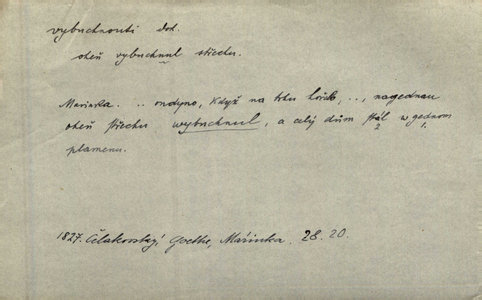 vybuchnouti dok.
oheň vybuchnul střechu.
Marinka. .. ondyno, když na trhu hořelo, .., nagednau
oheň střechu wybuchnul, a celý dům stál w gednom
2 1.
plamenu.
1827. Čelakovský, Goethe, Mařinka. 28. 20.